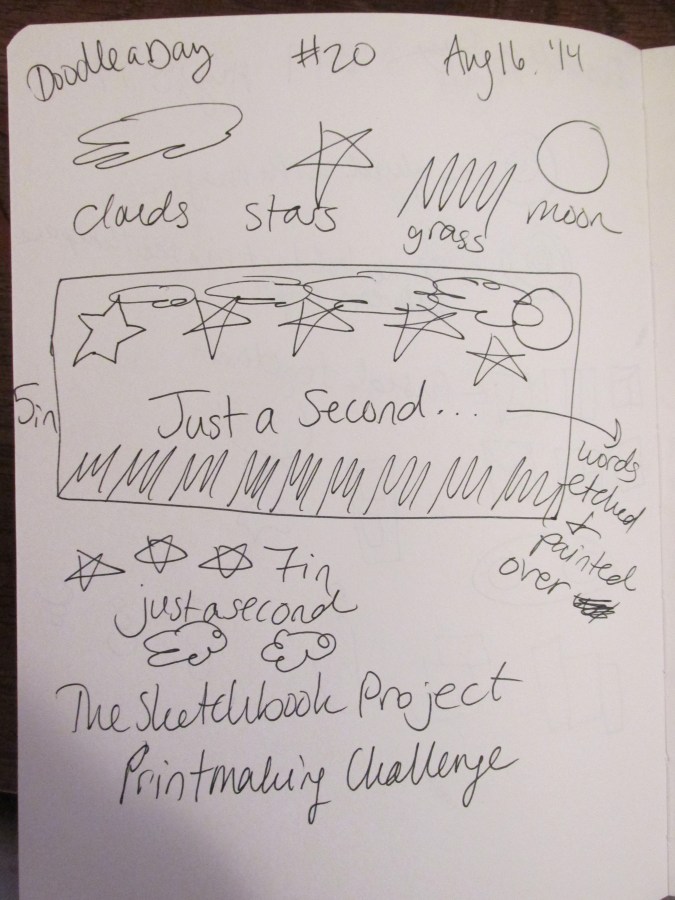 Doodle a Day #20 Aug 16. '14
clouds stars grass moon
5in
Just a Second...
words
etched
+
painted
over
7in
justasecond
The Sketchbook Project
Printmaking Challenge